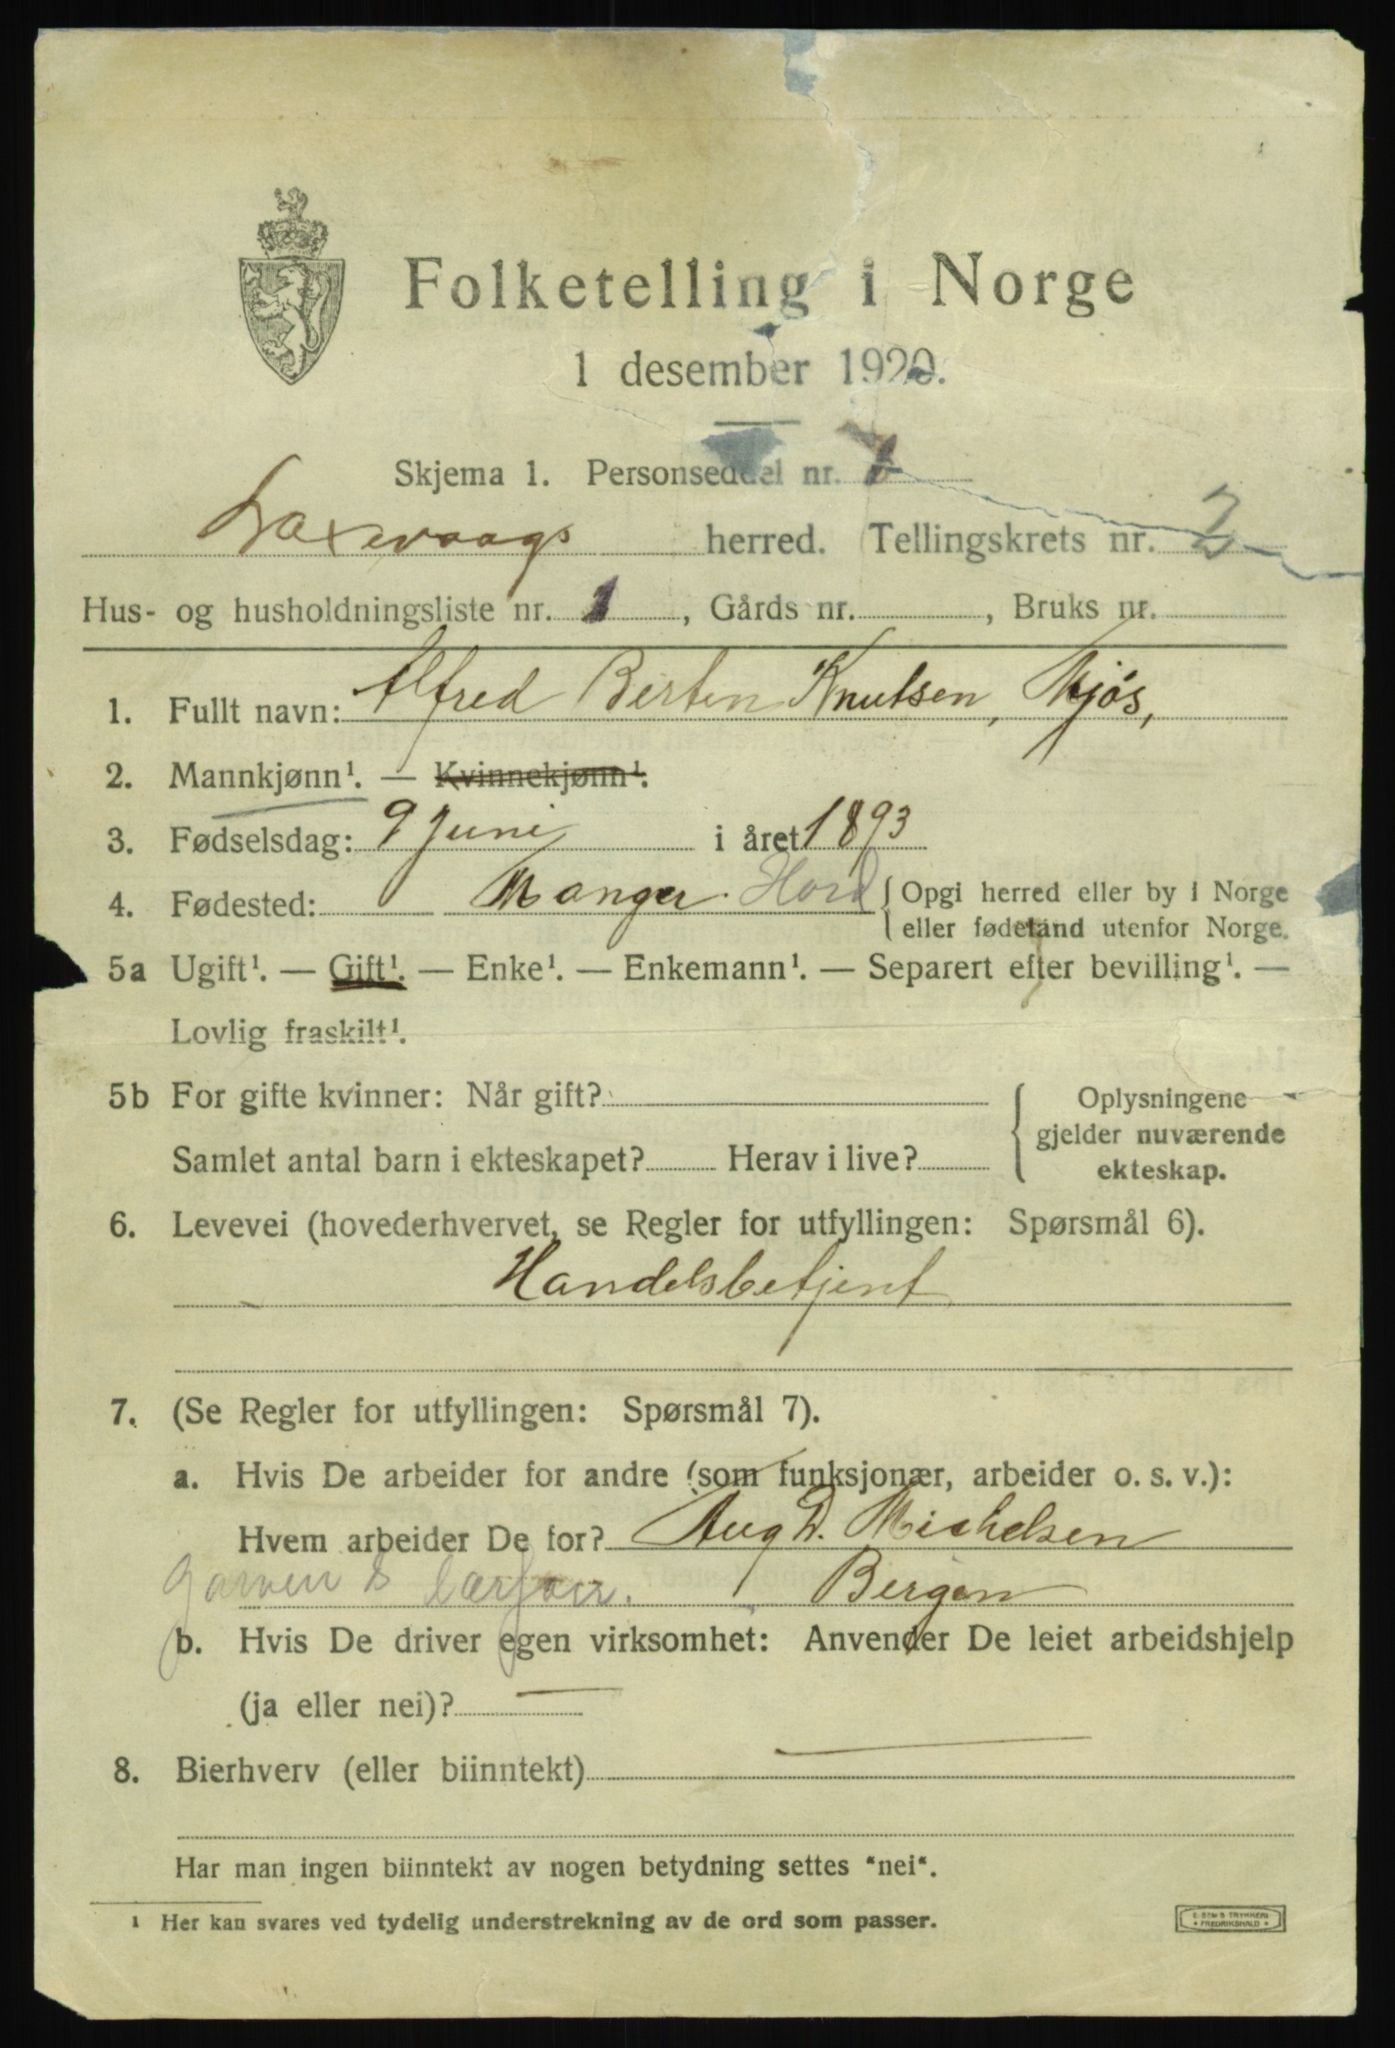 Folketelling i Norge
1 desember 1920.
Skjema 1. Personseddel nr. 1
Laxevaags herred. Tellingskrets nr. 2
Hus- og husholdningsliste nr. 1, Gårds nr. , Bruks nr.
1. Fullt navn: Alfred Berten Knutsen,
2. Mannkjønn¹. — Kvinnekjønn¹.
3. Fødselsdag: 9 Juni i året 1893
4. Fødested: Manger. Hord { Opgi herred eller by i Norge
eller fødeland utenfor Norge.
5a Ugift¹. — Gift¹. — Enke¹. — Enkemann¹. — Separert efter bevilling¹. —
Lovlig fraskilt¹.
5b For gifte kvinner: Når gift? { Oplysningene
gjelder nuværende
Samlet antal barn i ekteskapet? Herav i live?
ekteskap.
6. Levevei (hovederhvervet, se Regler for utfyllingen: Spørsmål 6).
Handelsbetjent
7. (Se Regler for utfyllingen: Spørsmål 7).
a. Hvis De arbeider for andre (som funksjonær, arbeider o. s. v.):
Hvem arbeider De for? Aug D. Michelsen
Bergen
b. Hvis De driver egen virksomhet: Anvender De leiet arbeidshjelp
(ja eller nei)? —
8. Bierhverv (eller biinntekt) —
Har man ingen biinntekt av nogen betydning settes "nei".
¹ Her kan svares ved tydelig understrekning av de ord som passer.
E. SEM'S TRYKKERI
• FREDRIKSHALD •